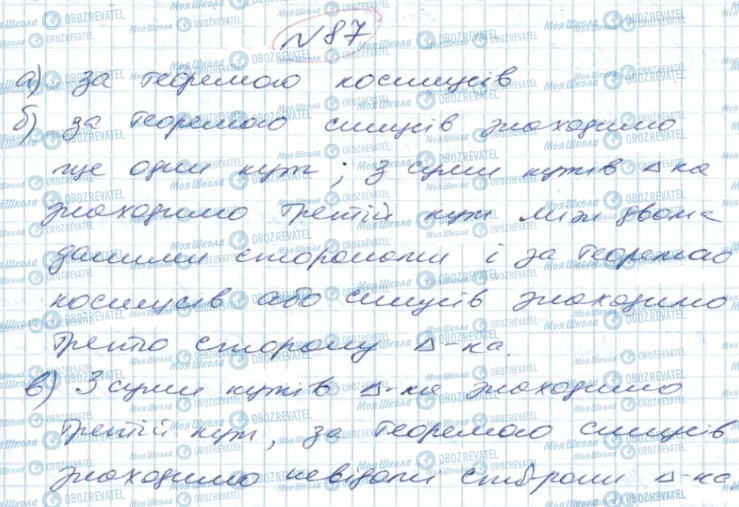 №87
а) за теоремою косинусів
б) за теоремою синусів знаходимо
ще один кут; з суми кутів △ка
знаходимо третій кут між двома
даними сторонами і за теоремою
косинусів або синусів знаходимо
третю сторону △-ка.
в) З суми кутів △-ка знаходимо
третій кут, за теоремою синусів
знаходимо невідомі сторони △-ка